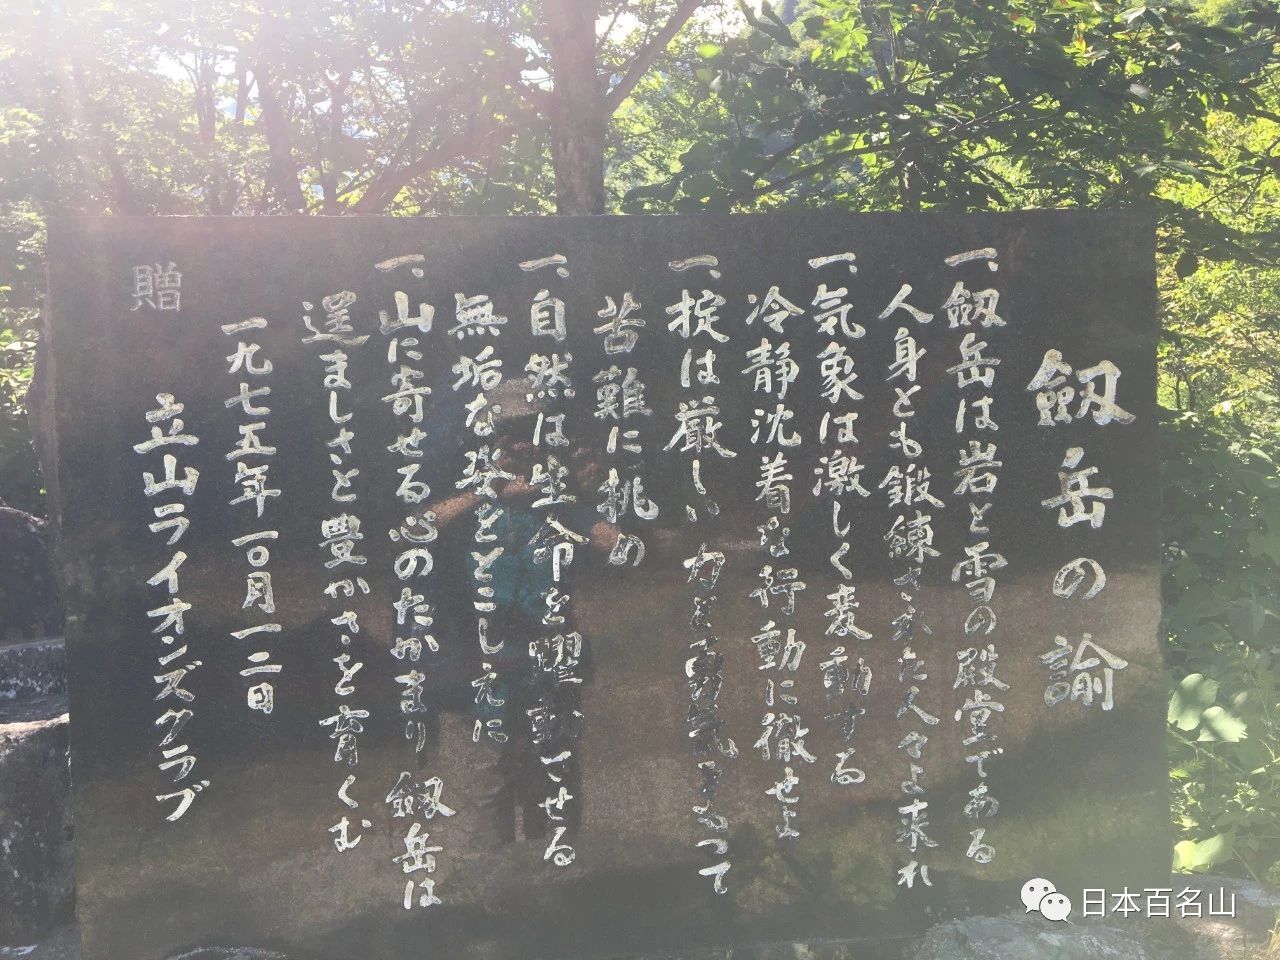 劔岳の諭
一、劔岳は岩と雪の殿堂である
人身とも鍛練された人々よ来れ
一、気象は激しく変動する
冷静沈着な行動に徹せよ
一、掟は厳しい 力と勇気をもって
苦難に挑め
一、自然は生命を躍動させる
無垢な姿をとこしえに
一、山に寄せる心のたかまり 劔岳は
逞ましさと豊かさを育くむ
一九七五年一〇月一二日
贈 立山ライオンズクラブ
日本百名山